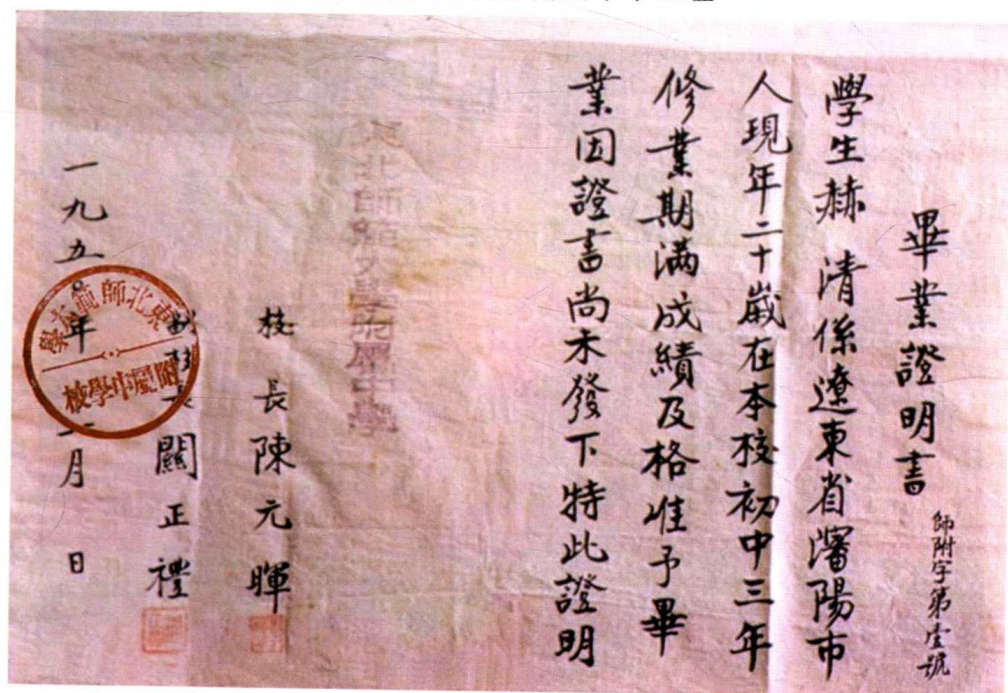 畢業證明書
師附字第壹號
學生赫 清係遼東省瀋陽市
人現年二十歲在本校初中三年
修業期滿成績及格准予畢
業因證書尚未發下特此證明
東北師範大學附屬中學
校 長陳元暉
長關正禮
一九五 年 月 日
東北師範大學
附屬中學校